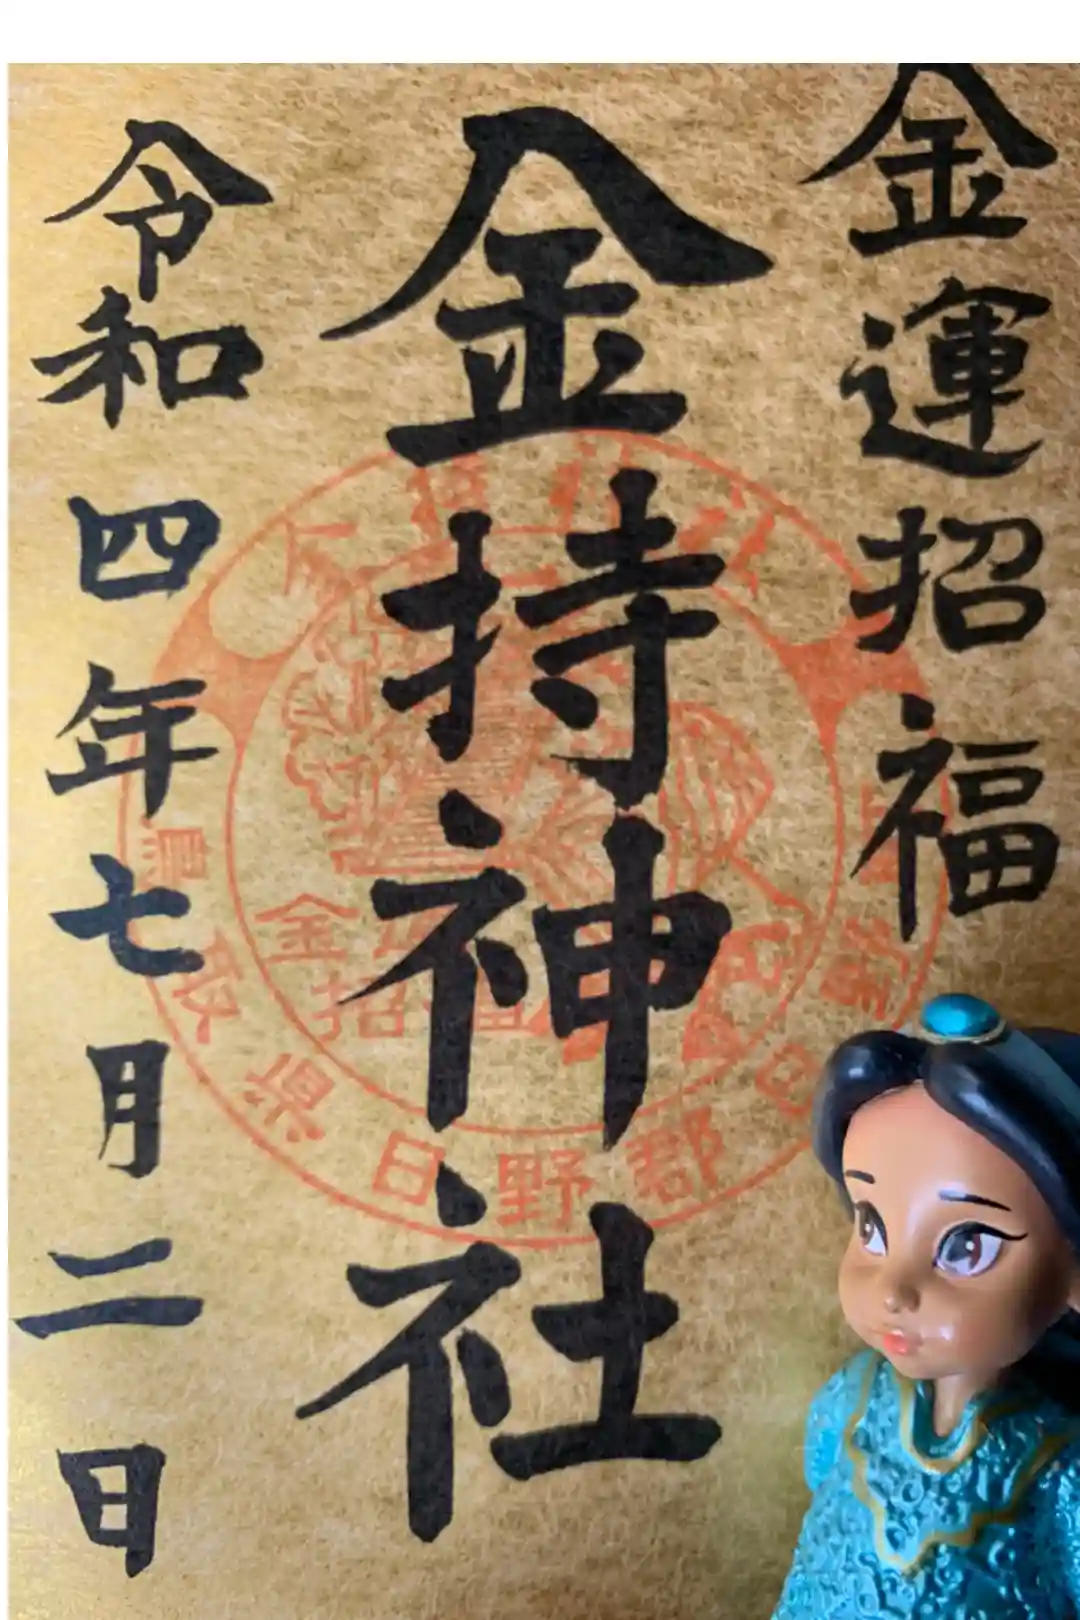 金運招福
金持神社
令和四年七月二日
鳥取県日野郡日野
金持
招福